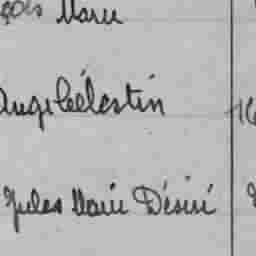 Marie
Ange Célestin 16
Jules Marie Désiré